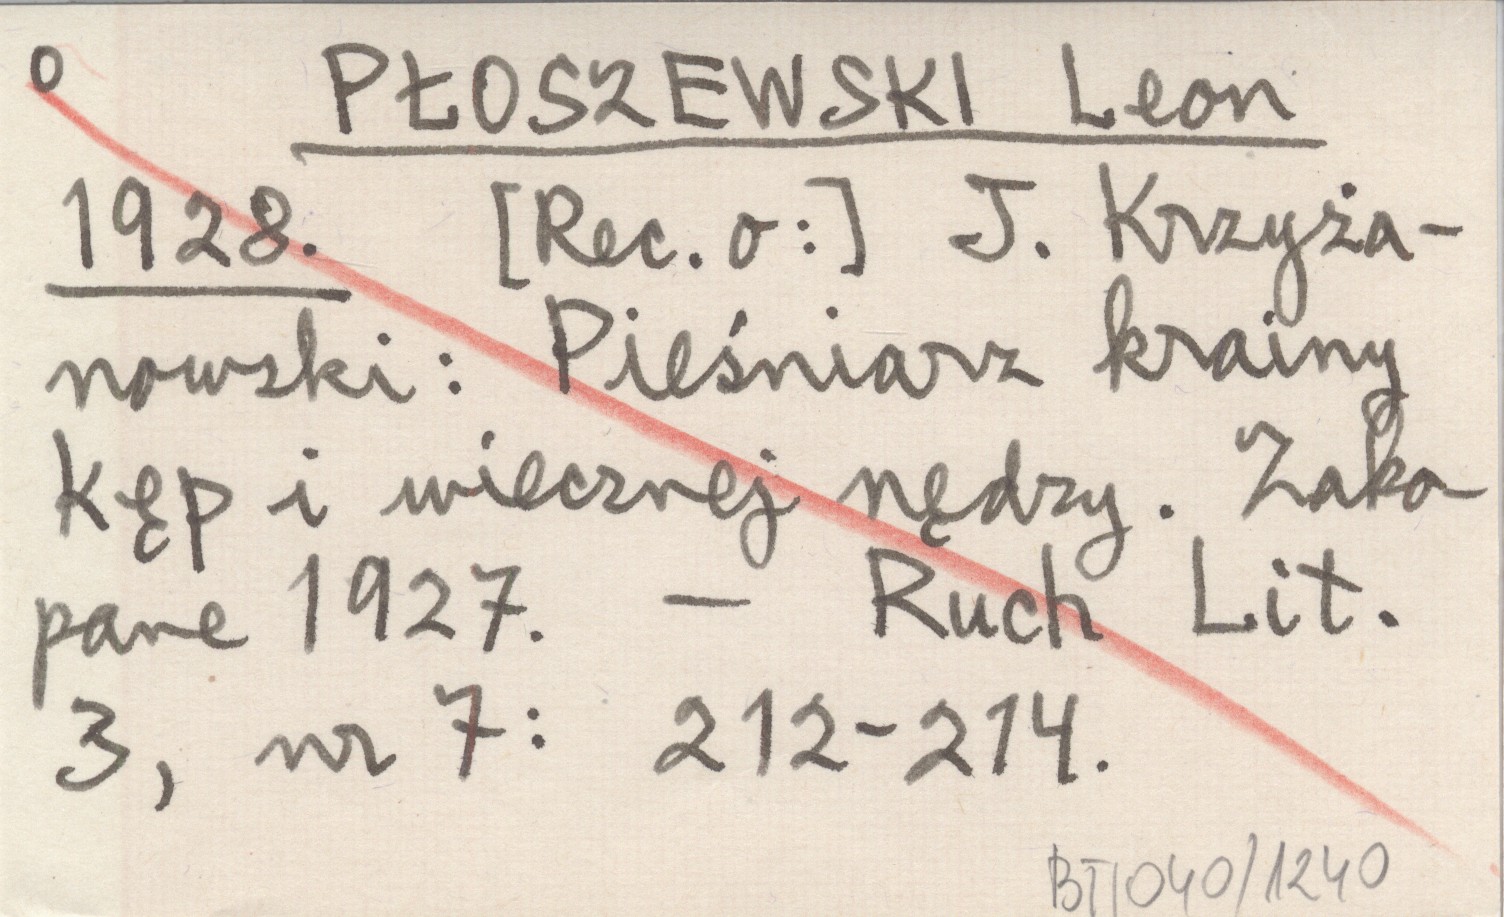 o
PŁOSZEWSKI Leon
1928. [Rec. o:] J. Krzyża-
nowski: Pieśniarz krainy
kęp i wiecznej nędzy. Zako
pane 1927. — Ruch Lit.
3, nr 7: 212-214.
BT/040/1240